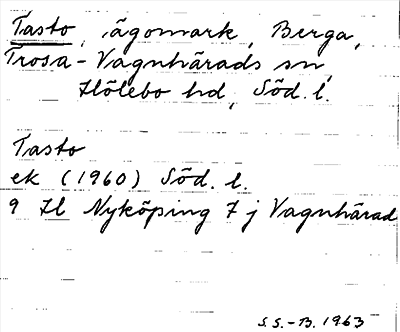 Tasto, ägomark, Berga,
Trosa-Vagnhärads sn,
Hölebo hd, Söd. l.
Tasto
ek (1960) Söd. l.
9 H Nyköping 7 j Vagnhärad
S.S.-B. 1963